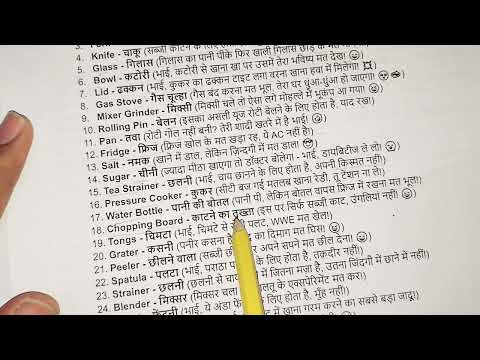 4. Knife - चाकू (सब्जी काटने के लिए
5. Glass - गिलास (गिलास का पानी पीके फिर खाली गिलास छोड़ के मत जा!)
6. Bowl - कटोरी (भाई, कटोरी से खाना खा पर उसमें तेरा भविष्य मत देख!
7. Lid - ढक्कन (भाई, कुकर का ढक्कन टाइट लगा वरना खाना हवा में मिलेगा!
8. Gas Stove - गैस चूल्हा (गैस बंद करना मत भूल, तेरा घर धुंआ-धुंआ हो जाएगा!)
9. Mixer Grinder - मिक्सी (मिक्सी चले तो ऐसा लगे मोहल्ले में भूकंप आ गया!
10. Rolling Pin - बेलन (इसका असली यूज रोटी बेलने के लिए होता है, याद रख!)
11. Pan - तवा (रोटी गोल नहीं बनी? तेरी शादी खतरे में है भाई!)
12. Fridge - फ्रिज (फ्रिज खोल के मत खड़ा रह, ये AC नहीं है!)
13. Salt - नमक (खाने में डाल, लेकिन ज़िन्दगी में मत डाल!
14. Sugar - चीनी (ज्यादा मीठा खाएगा तो डॉक्टर बोलेगा - भाई, डायबिटीज ले लो!
15. Tea Strainer - छलनी (भाई, चाय छानने के लिए होता है, अपनी किस्मत नहीं!)
16. Pressure Cooker - कुकर (सीटी बज गई मतलब खाना रेडी, तू टेंशन ना ले!)
17. Water Bottle - पानी की बोतल (पानी पी, लेकिन बोतल वापस फ्रिज में रखना मत भूल!)
18. Chopping Board - काटने का तख्ता (इस पर सिर्फ सब्जी काट, उंगलियां नहीं!
19. Tongs - चिमटा (भाई, चिमटे से पलट, WWE मत खेल!)
20. Grater - कसनी (पनीर कसना है, का दिमाग मत घिस!
21. Peeler - छीलने वाला (सब्जी छी और अपने सपने मत छील देना!
22. Spatula - पलटा (भाई, पराठा प के लिए होता है, तक़दीर नहीं!)
23. Strainer - छलनी (भाई, चाय से में जितना मज़ा है, उतना जिंदगी में छाने में नहीं!)
24. Blender - मिक्सर (मिक्सर चला के एक्सपेरिमेंट मत कर!)
फेंटनी (भाई, ये अंडा फें
में खाना गरम करने का सबसे बड़ा जादू!)